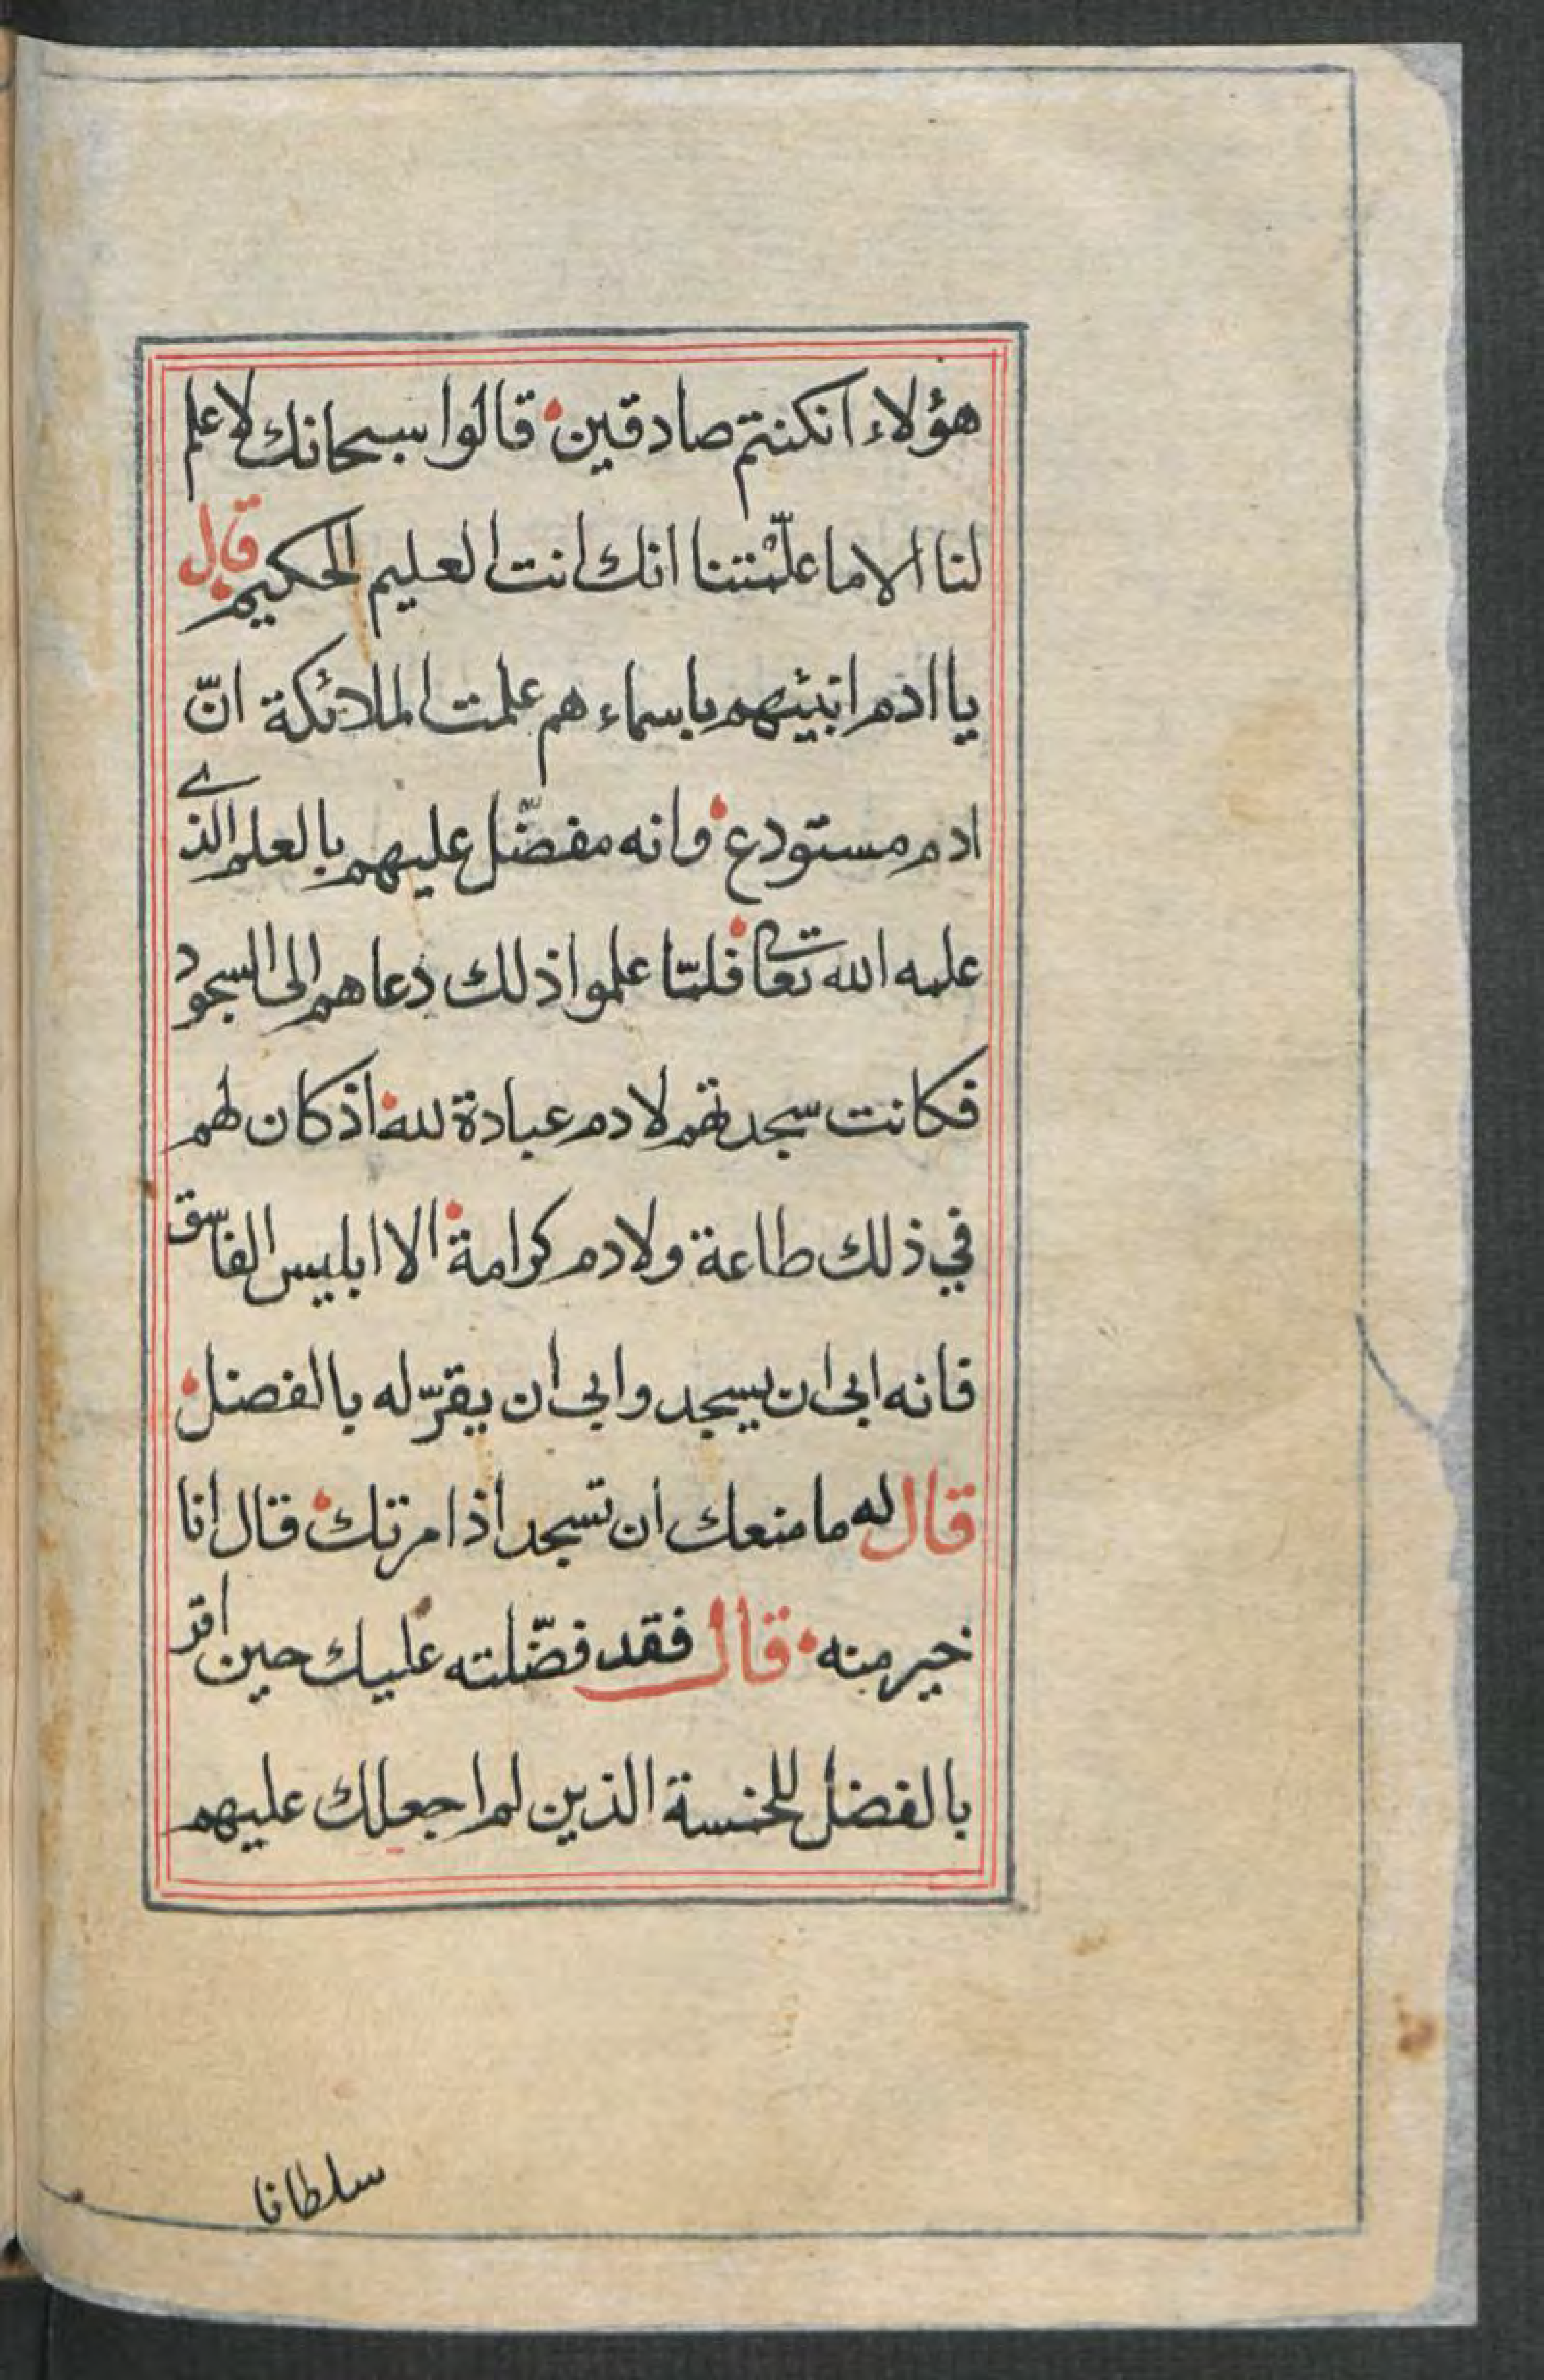 هؤلاء انكنتم صادقين قالوا سبحانك لا علم
لنا الا ما علّمتنا انك انت العليم الحكيم قال
يا ادم انبيئهم باسماء هم علمت الملائكة انّ
ادم مستودع وانه مفضّل عليهم بالعلم الذي
علمه الله تعالى فلمّا علموا ذلك دعاهم الى السجود
فكانت سجدتهم لادم عبادة لله اذ كان لهم
في ذلك طاعة ولادم كرامة الا ابليس الفاسق
فانه ابى ان يسجد وابى ان يقرّ له بالفضل
قال له ما منعك ان تسجد اذ امرتك قال انا
خير منه قال فقد فضّلته عليك حين اقر
بالفضل للخمسة الذين لم اجعل لك عليهم
سلطانا